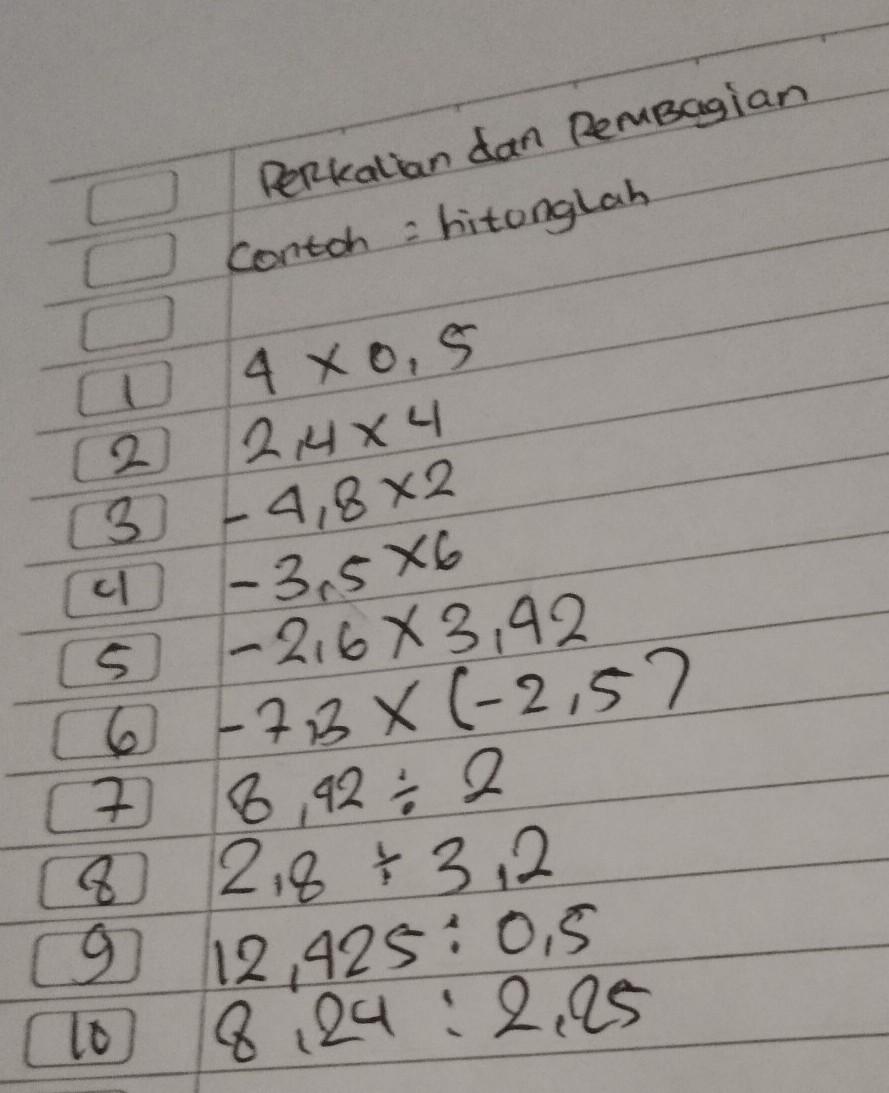 Perkalian dan Pembagian
Contoh : hitunglah
1 4 x 0,5
2 2,4 x 4
3 -4,8 x 2
4 -3,5 x 6
5 -2,6 x 3,42
6 -7,3 x (-2,5)
7 8,42 ÷ 2
8 2,8 ÷ 3,2
9 12,425 : 0,5
10 8,24 : 2,25